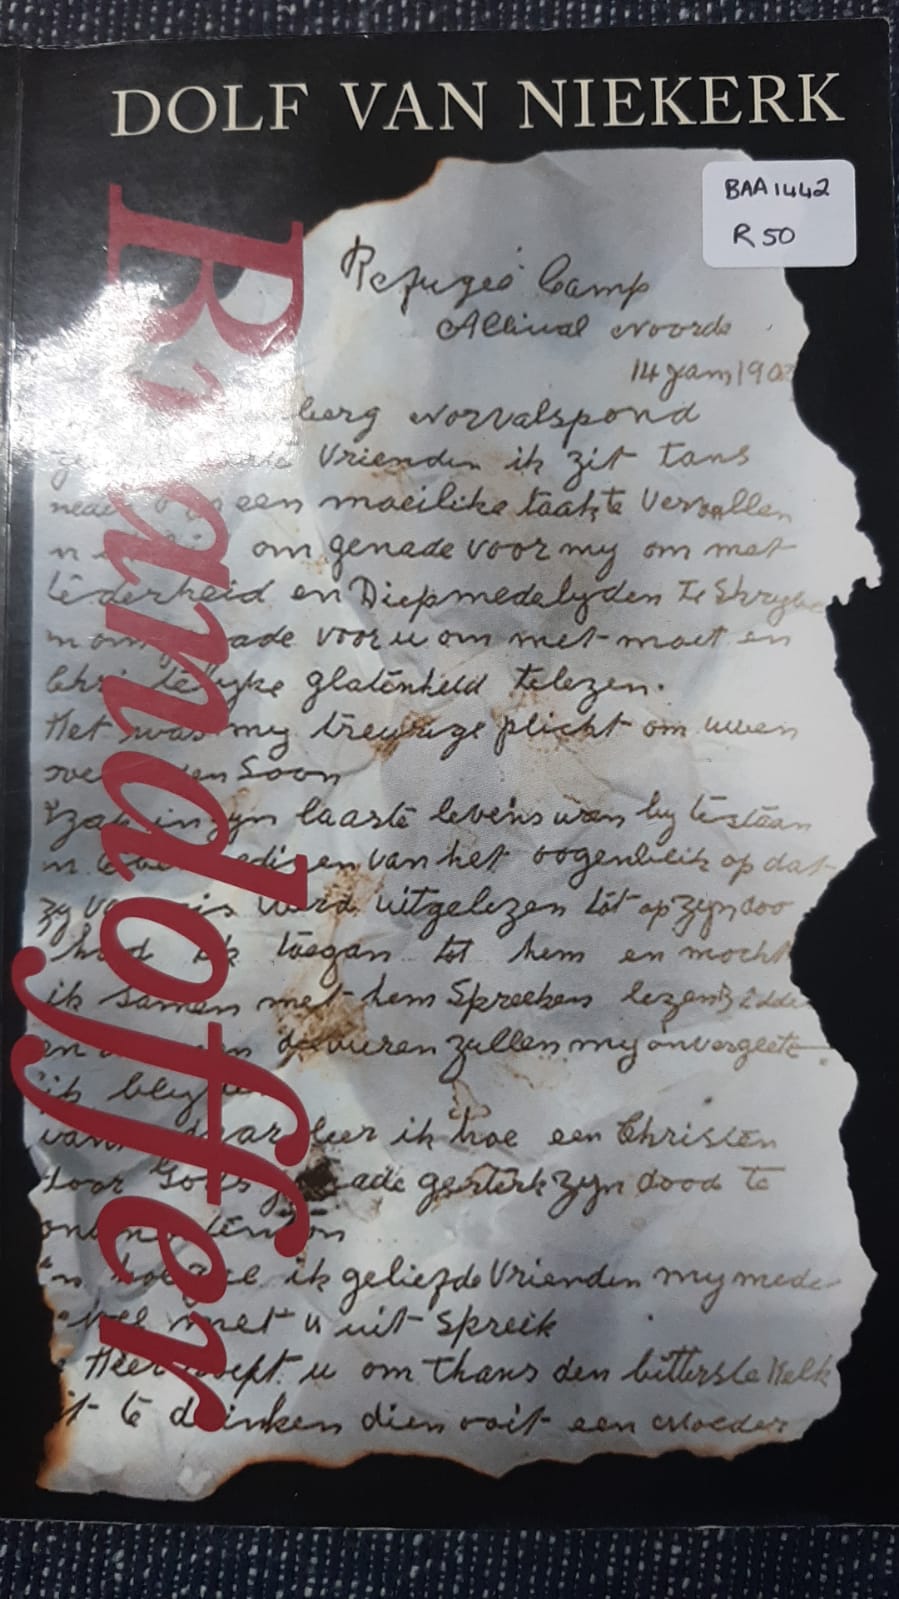 DOLF VAN NIEKERK
BAA1442
R 50
Brandoffer
Refugee Camp
Aliwal Noorde
14 Jam 190
berg Norvalspond
Vrienden ik zit tans
een moeilike taak te Vervullen
om genade voor my om met
tederheid en Diepmedelyden te Skryve
ade voor u om met moet en
gelatenheid te lezen.
Het was my treurige plicht om uwen
Soon
in zyn laaste levens uren by te staan
van het oogenblik op dat
word uitgelezen tot op zyn doo
had ik toegan tot hem en mocht
ik samen met hem Spreeken lezen
uren zullen my onvergeete
ik blyve
leer ik hoe een Christen
door Gods ade gesterk zyn dood te
ik geliefde Vrienden my mede
met u uit Spreik
Heer roept u om thans den bitterste kelk
te drinken dien ooit een Moeder